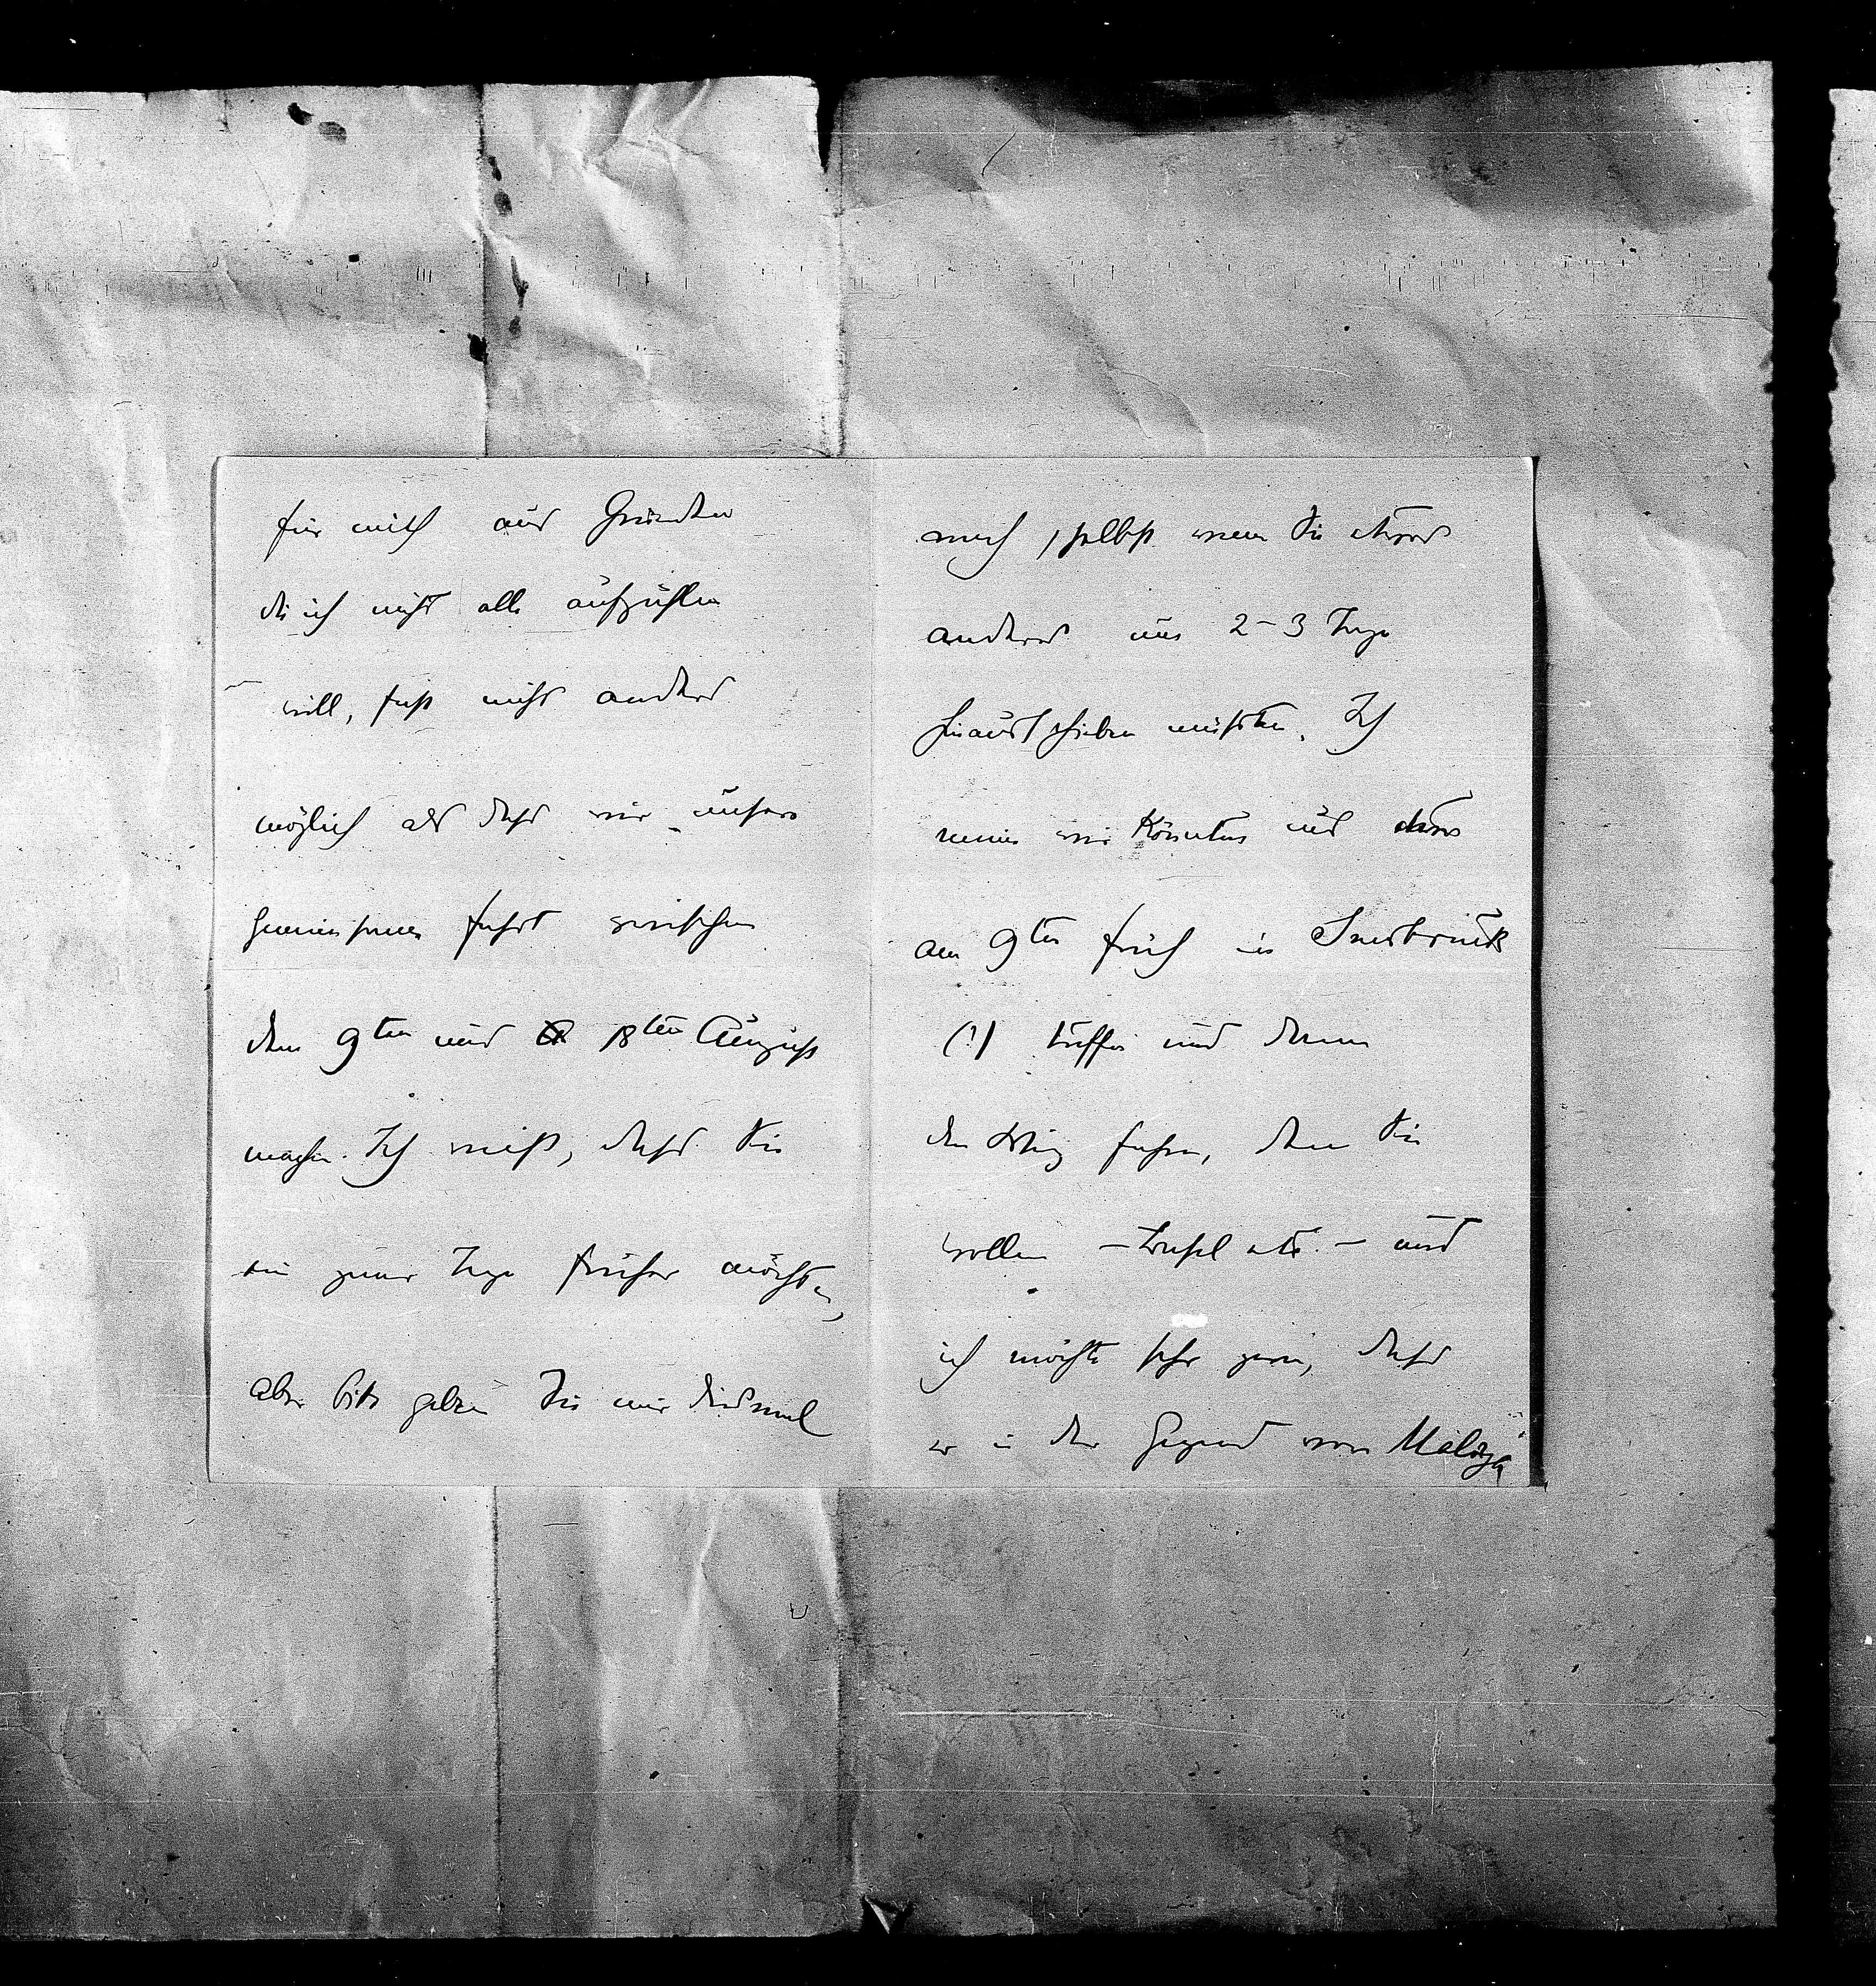 für mich aus Gründen
die ich nicht alle aufzählen
will, fast nicht anders
möglich als dass wir unsere
gemeinsame Fahrt zwischen
dem 9ten und 18ten August
machen. Ich weiß, dass Sie
ein paar Tage früher möchten,
aber bitte geben Sie mir diesmal
nach, selbst wenn Sie etwas
anderes um 2–3 Tage
hinausschieben müssten. Ich
meine wir könnten uns etwa
am 9ten früh in Innsbruck
(!) treffen und dann
den Weg fahren, den Sie
wollen – etc. – und
ich möchte sehr gern, dass
er in der Gegend von Maloja